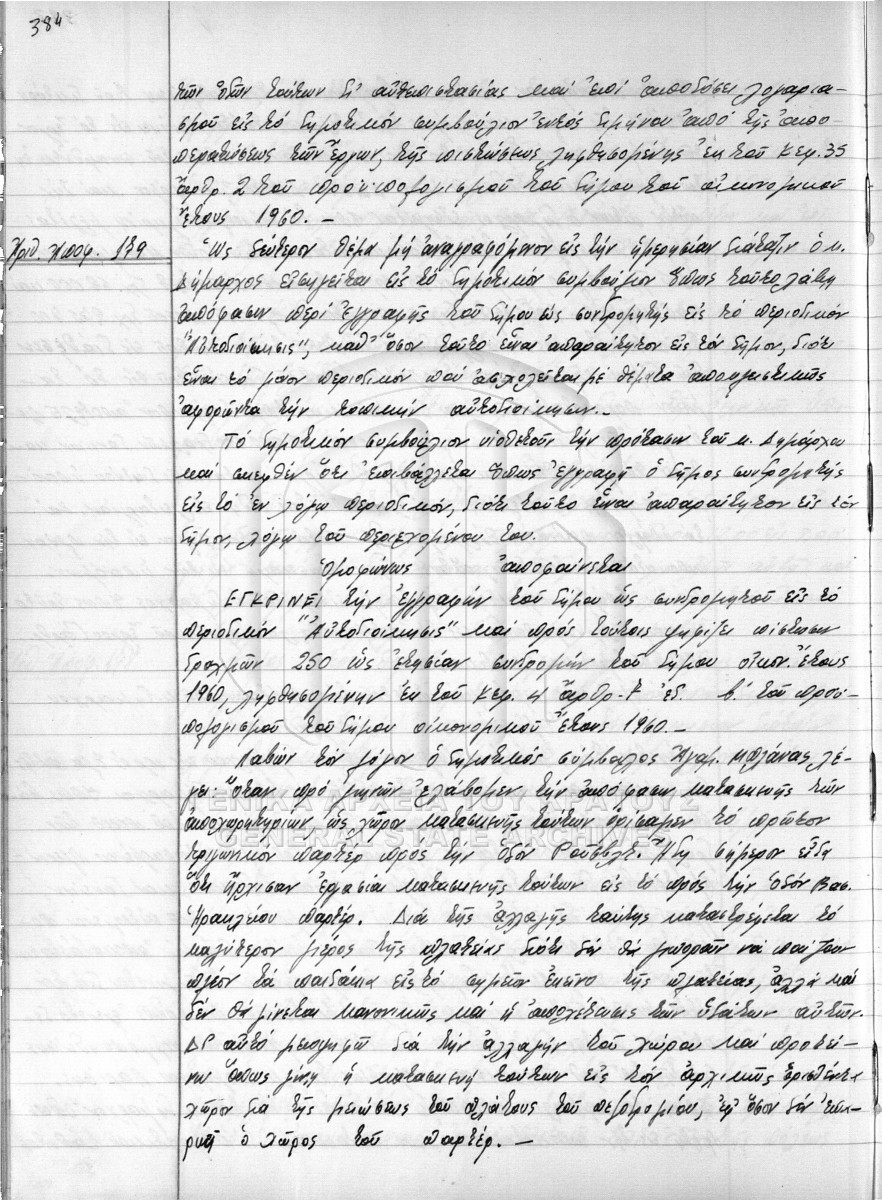 384
τῶν ὁδῶν τούτων δι' αὐτεπιστασίας καί ἐπί ἀποδόσει λογαρια-
σμοῦ εἰς τό δημοτικόν συμβούλιον ἐντός διμήνου ἀπό τῆς ἀπο-
περατώσεως τῶν ἔργων, τῆς πιστώσεως ληφθησομένης ἐκ τοῦ κεφ. 35
ἄρθρ. 2 τοῦ προϋπολογισμοῦ τοῦ δήμου τοῦ οἰκονομικοῦ
ἔτους 1960. —
Ἀριθ. Ἀποφ. 179
Ὡς δεύτερον θέμα μή ἀναγραφόμενον εἰς τήν ἡμερησίαν διάταξιν ὁ κ.
Δήμαρχος εἰσηγεῖται εἰς τό δημοτικόν συμβούλιον ὅπως τοῦτο λάβῃ
ἀπόφασιν περί ἐγγραφῆς τοῦ δήμου ὡς συνδρομητής εἰς τό περιοδικόν
"Αὐτοδιοίκησις", καθ' ὅσον τοῦτο εἶναι ἀπαραίτητον εἰς τόν δῆμον, διότι
εἶναι τό μόνον περιοδικόν πού ἀσχολεῖται μέ θέματα ἀποκλειστικῶς
ἀφορῶντα τήν τοπικήν αὐτοδιοίκησιν. —
Τό δημοτικόν συμβούλιον υἱοθετοῦν τήν πρότασιν τοῦ κ. Δημάρχου
καί σκεφθέν ὅτι ἐπιβάλλεται ὅπως ἐγγραφῇ ὁ δῆμος συνδρομητής
εἰς τό ἐν λόγῳ περιοδικόν, διότι τοῦτο εἶναι ἀπαραίτητον εἰς τόν
δῆμον, λόγῳ τοῦ περιεχομένου του.
Ὁμοφώνως ἀποφαίνεται
ΕΓΚΡΙΝΕΙ τήν ἐγγραφήν τοῦ δήμου ὡς συνδρομητοῦ εἰς τό
περιοδικόν "Αὐτοδιοίκησις" καί πρός τούτοις ψηφίζει πίστωσιν
δραχμῶν 250 ὡς ἐτησίαν συνδρομήν τοῦ δήμου οἰκον. ἔτους
1960, ληφθησομένην ἐκ τοῦ κεφ. 4 ἄρθρ. 7 ἐδ. β. τοῦ προϋ-
πολογισμοῦ τοῦ δήμου οἰκονομικοῦ ἔτους 1960. —
Λαβών τόν λόγον ὁ δημοτικός σύμβουλος Ἀγαμ. Μπλάνας λέ-
γει: Ὅταν πρό μηνῶν ἐλάβομεν τήν ἀπόφασιν κατασκευῆς τῶν
ἀποχωρητηρίων ὡς χῶρον κατασκευῆς τούτων ὁρίσαμεν τό πρῶτον
τριγωνικόν παρτέρ πρός τήν ὁδόν Ροῦσβελτ. Ἤδη σήμερον εἶδα
ὅτι ἤρχισαν ἐργασίαι κατασκευῆς τούτων εἰς τό πρός τήν ὁδόν Βασ.
Ἡρακλείου παρτέρ. Διά τῆς ἀλλαγῆς ταύτης καταστρέφεται τό
καλύτερον μέρος τῆς πλατείας διότι δέν θά μποροῦν νά παίζουν
πλέον τά παιδάκια εἰς τό σημεῖον ἐκεῖνο τῆς πλατείας, ἀλλά καί
δέν θά γίνεται κανονικῶς καί ἡ ἀποχέτευσις τῶν ὑδάτων αὐτῶν.
Δι' αὐτό μειοψηφῶ διά τήν ἀλλαγήν τοῦ χώρου καί προτεί-
νω ὅπως γίνῃ ἡ κατασκευή τούτων εἰς τόν ἀρχικῶς ὁρισθέντα
χῶρον διά τῆς μειώσεως τοῦ πλάτους τοῦ πεζοδρομίου, ἐφ' ὅσον δέν ἐπαρ-
κεῖ ὁ χῶρος τοῦ παρτέρ. —
ΓΕΝΙΚΑ ΑΡΧΕΙΑ ΤΟΥ ΚΡΑΤΟΥΣ
GENERAL STATE ARCHIVES